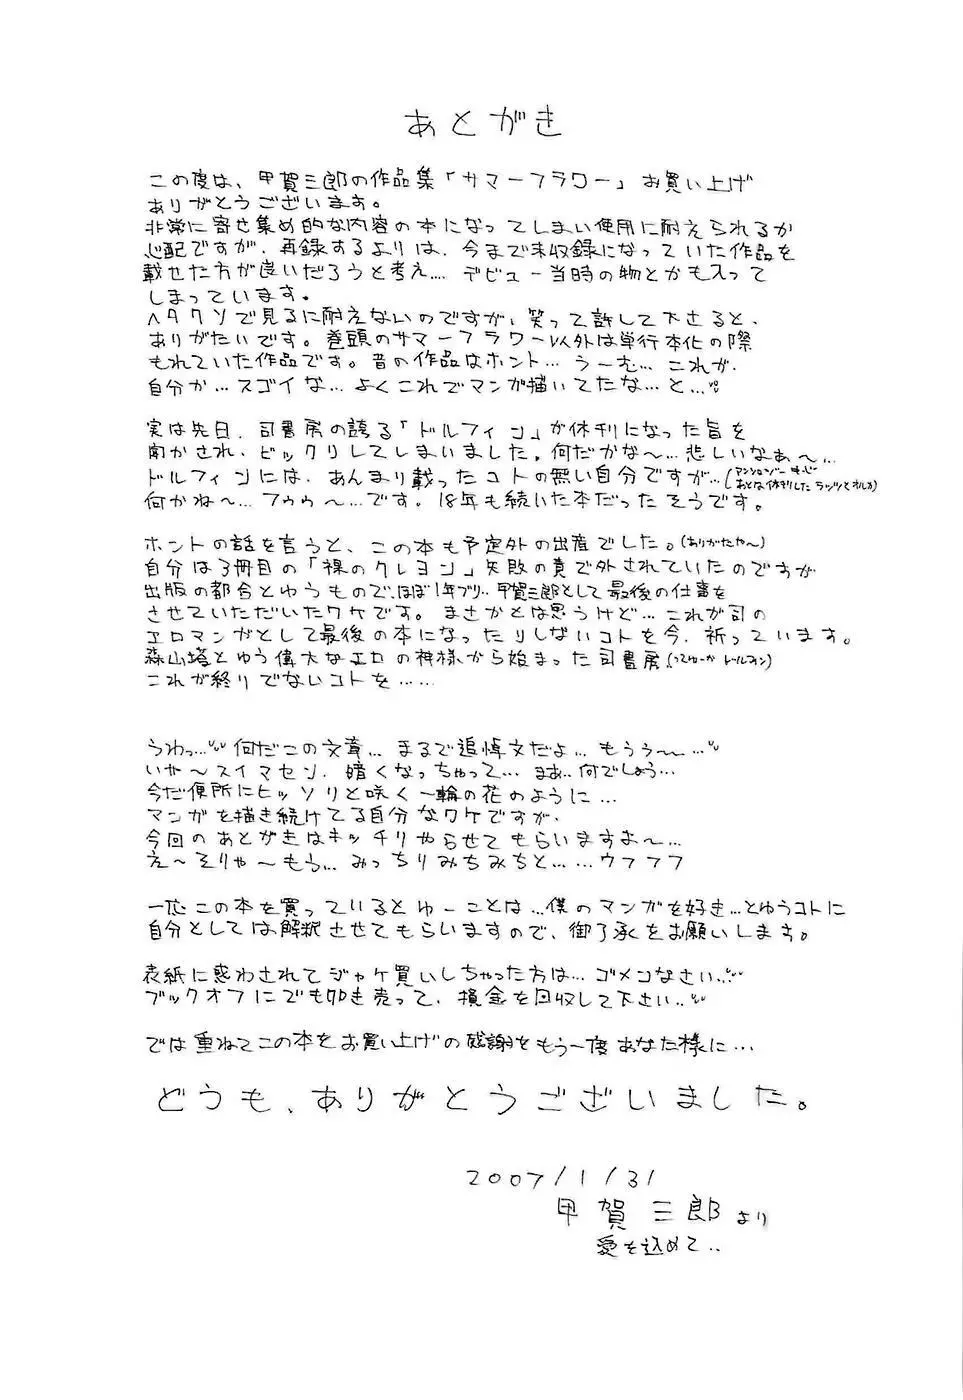 あとがき
この度は、甲賀三郎の作品集「サマーフラワー」お買い上げ
ありがとうございます。
非常に寄せ集め的な内容の本になってしまい使用に耐えられるか
心配ですが、再録するよりは、今まで未収録になっていた作品を
載せた方が良いだろうと考え…. デビュー当時の物とかも入って
しまっています。
ヘタクソで見るに耐えないのですが、笑って許して下さると、
ありがたいです。巻頭のサマーフラワー以外は単行本化の際
もれていた作品です。昔の作品はホント… うーむ… これが、
自分か…スゴイな…よくこれでマンガ描いてたな…と…
実は先日、司書房の誇る「ドルフィン」が休刊になった旨を
聞かされ、ビックリしてしまいました。何だかな〜…悲しいなぁ〜…
ドルフィンには、あんまり載ったコトの無い自分ですが…(アンソロジー
あとは休刊したラッツとオルカ)
何かね〜…フゥゥ〜…です。18年も続いた本だったそうです。
ホントの話を言うと、この本も予定外の出産でした。(ありがたや〜)
自分は3冊目の「裸のクレヨン」失敗の責で外されていたのですが
出版の都合とゆうもので、ほぼ1年ブリ.. 甲賀三郎として最後の仕事を
させていただいたワケです。まさかとは思うけど…これが司の
エロマンガとして最後の本になったりしないコトを今、祈っています。
森山塔とゆう偉大なエロの神様から始まった司書房(ってゆーか ドルフィン)
これが終りでないコトを……
うわっ…何だこの文章…まるで追悼文だよ…もうぅ〜…
いや〜スイマセン、暗くなっちゃって…まぁ..何でしょう…
今だ便所にヒッソリと咲く一輪の花のように…
マンガを描き続けてる自分なワケですが、
今回のあとがきはキッチリやらせてもらいますよ〜…
え〜そりゃ〜もう…みっちりみちみちと……ウフフフ
一応この本を買っているとゆーことは…僕のマンガを好き…とゆうコトに
自分としては解釈させてもらいますので、御了承をお願いします。
表紙に惑わされてジャケ買いしちゃった方は…ゴメンなさい…
ブックオフにでも叩き売って、損金を回収して下さい..
では重ねてこの本をお買い上げの感謝をもう一度あなた様に…
どうも、ありがとうございました。
2007/1/31
甲賀三郎より
愛を込めて..